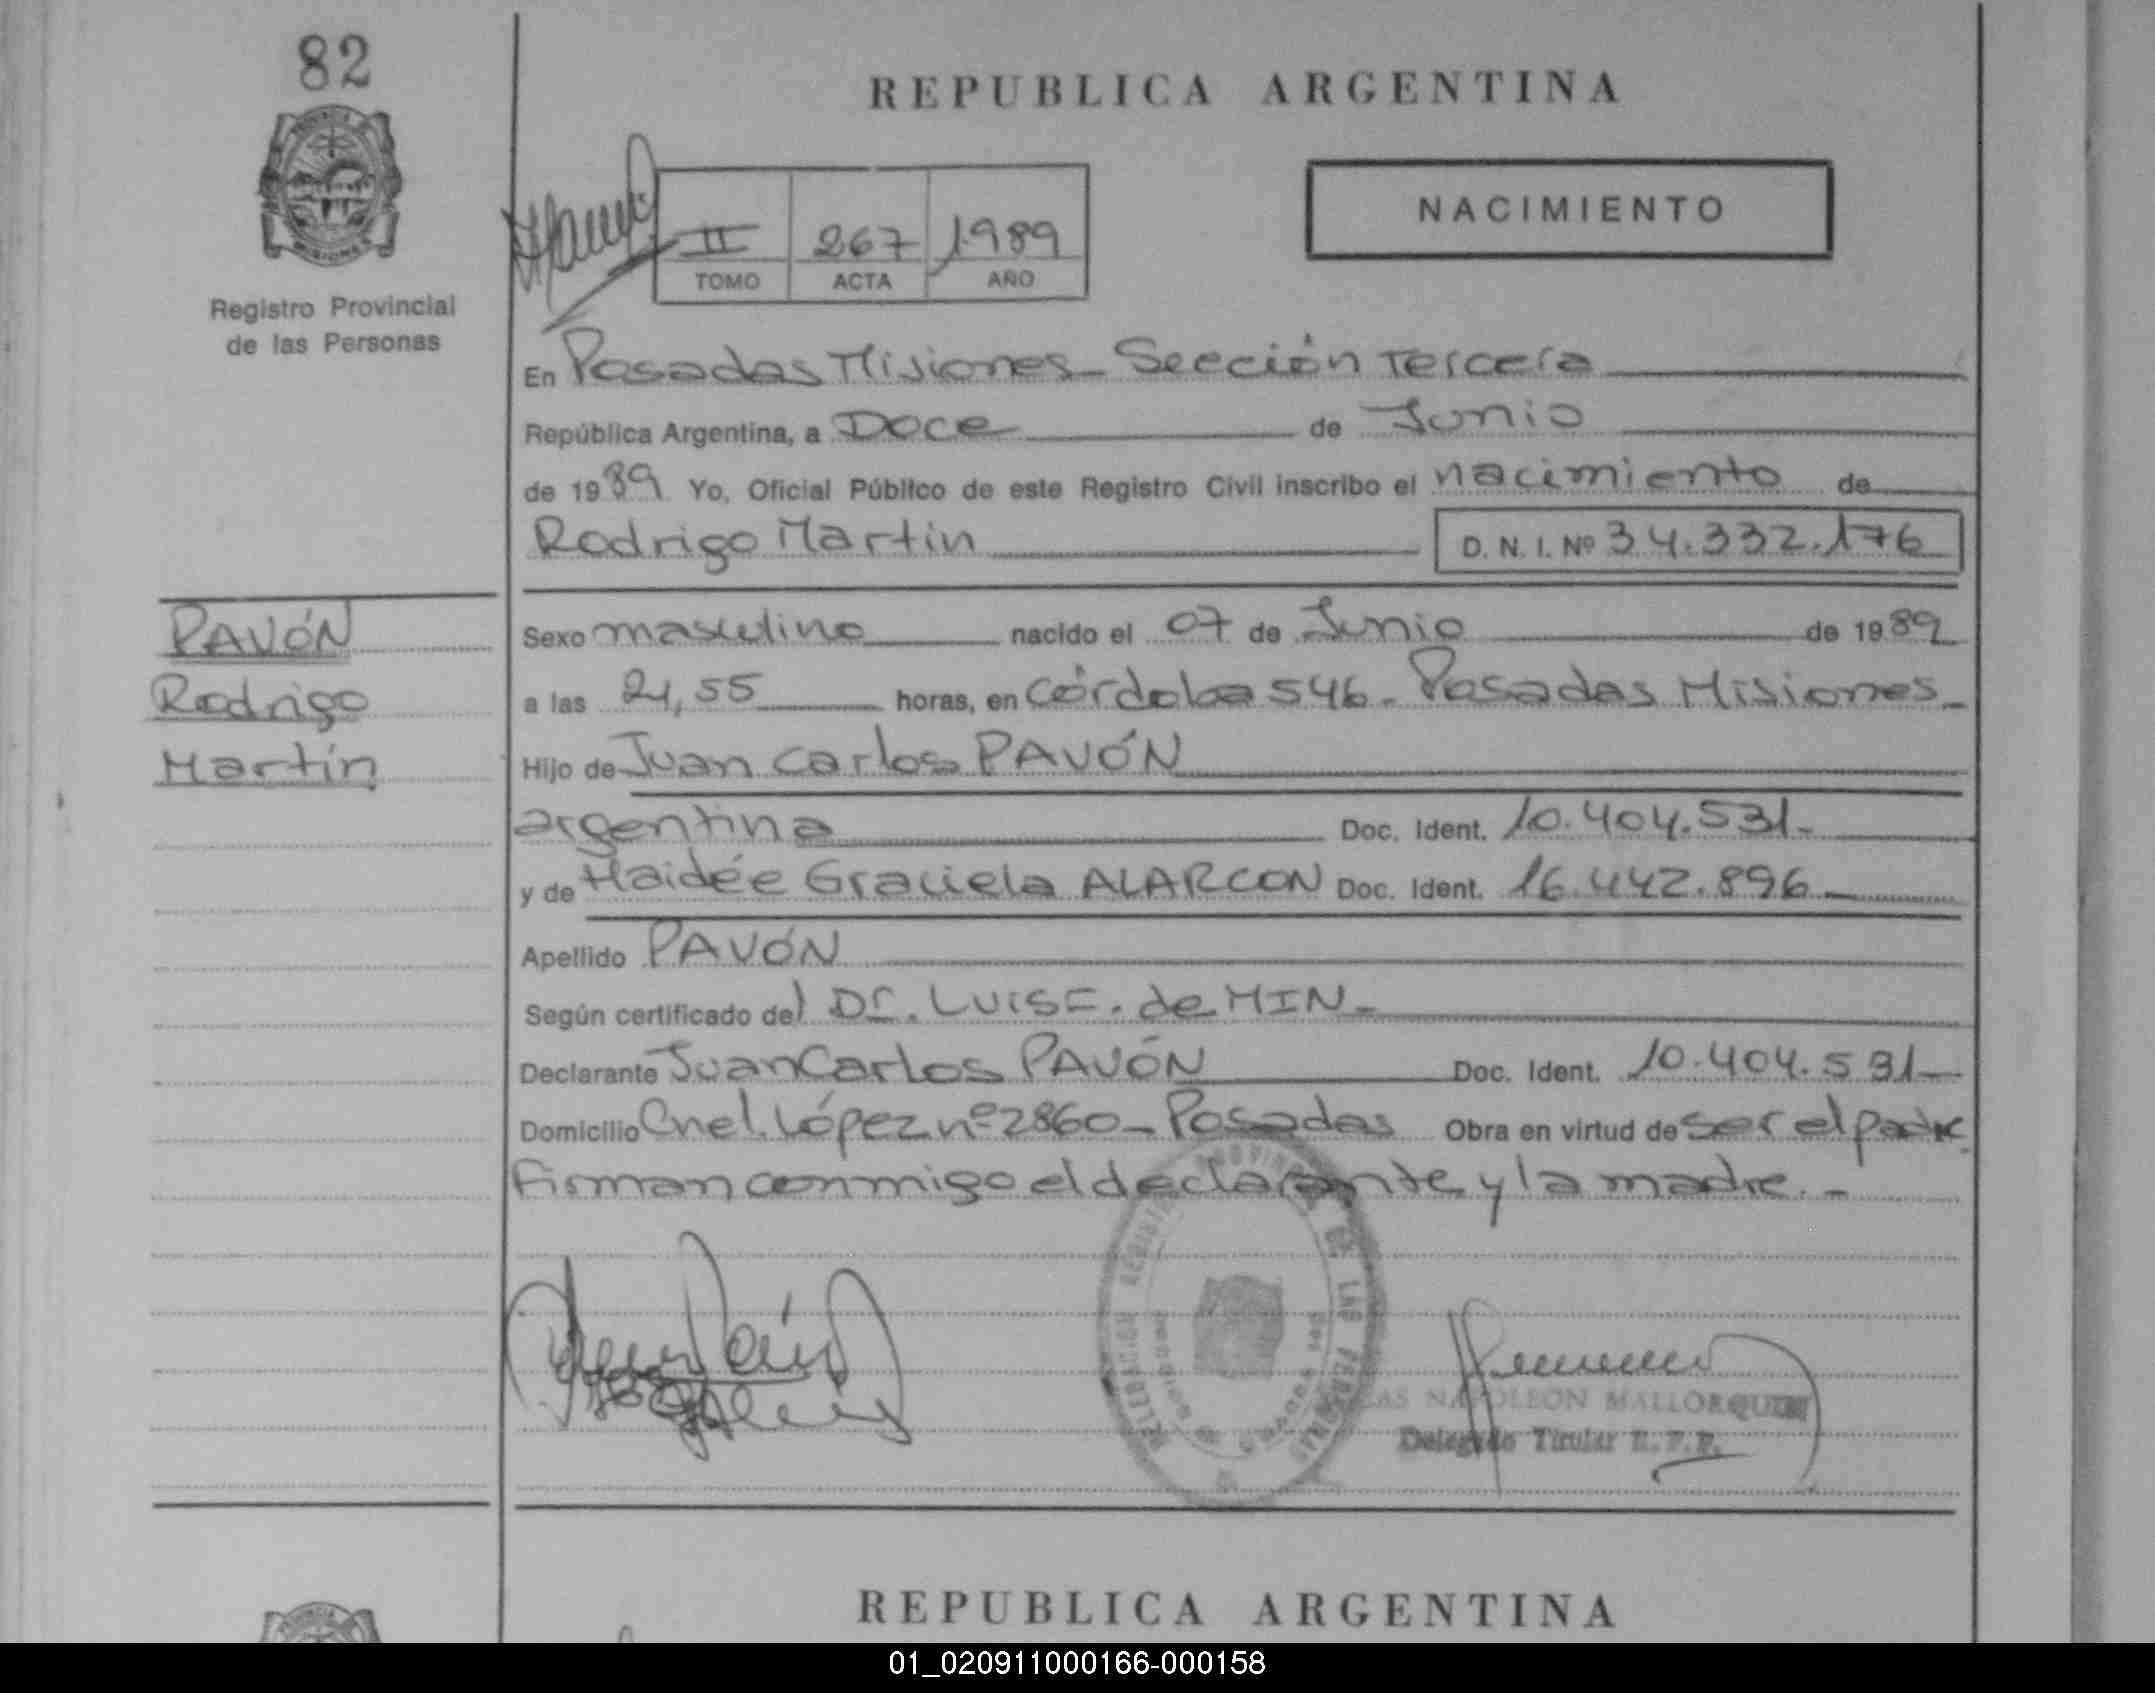 82
REPUBLICA ARGENTINA
NACIMIENTO
II 267 1989
TOMO ACTA AÑO
Registro Provincial
de las Personas
En Posadas Misiones - Sección Tercera
República Argentina, a Doce de Junio
de 1989 Yo, Oficial Público de este Registro Civil inscribo el nacimiento de
Rodrigo Martín D. N. I. Nº 34.332.176
PAVÓN
Rodrigo
Martín
Sexo masculino nacido el 07 de Junio de 1989
a las 21,55 horas, en Córdoba 546 - Posadas Misiones -
Hijo de Juan Carlos PAVÓN
argentina Doc. Ident. 10.404.531 -
y de Haidée Graciela ALARCON Doc. Ident. 16.442.896 -
Apellido PAVÓN
Según certificado del Dr. LUIS E. de MIN -
Declarante Juan Carlos PAVÓN Doc. Ident. 10.404.531 -
Domicilio Cnel. López nº 2860 - Posadas Obra en virtud de ser el padre
Firman conmigo el declarante y la madre. -
NAPOLEON MALLORQUIN
Delegado Titular R. P. P.
REPUBLICA ARGENTINA
01_020911000166-000158